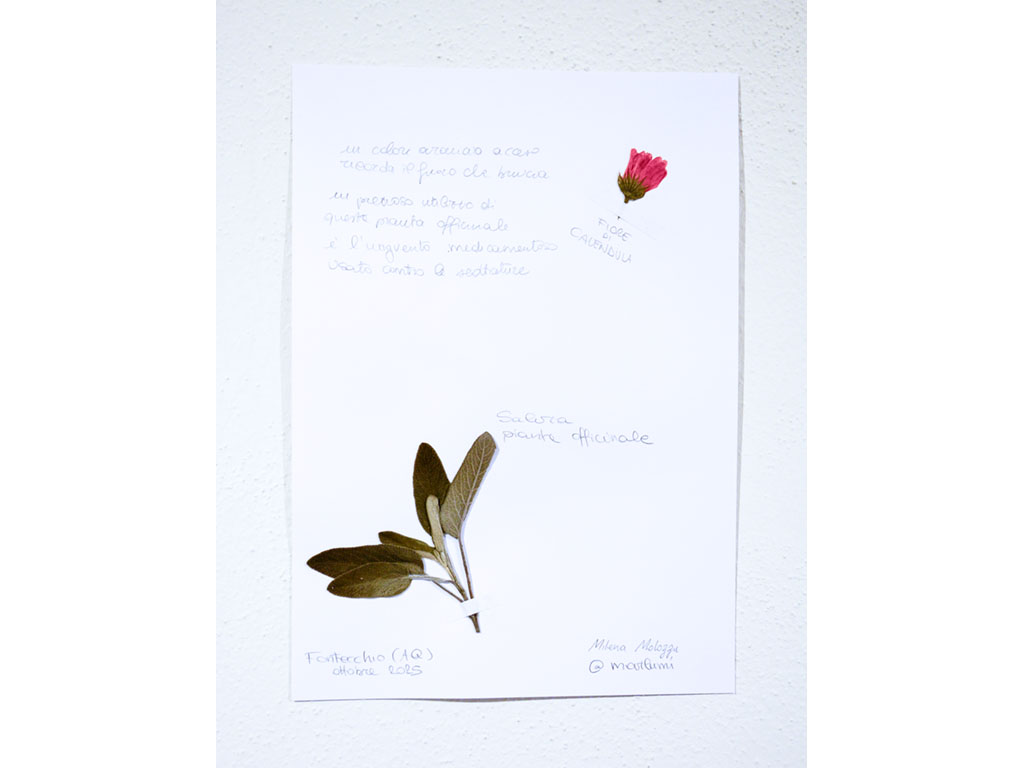 un colore arancio acceso
ricorda il fuoco che brucia
un prezioso utilizzo di
questa pianta officinale
è l'unguento medicamentoso
usato contro le scottature
FIORE
DI
CALENDULA
Salvia
pianta officinale
Fontecchio (AQ)
ottobre 2025
Milena
@marlumi